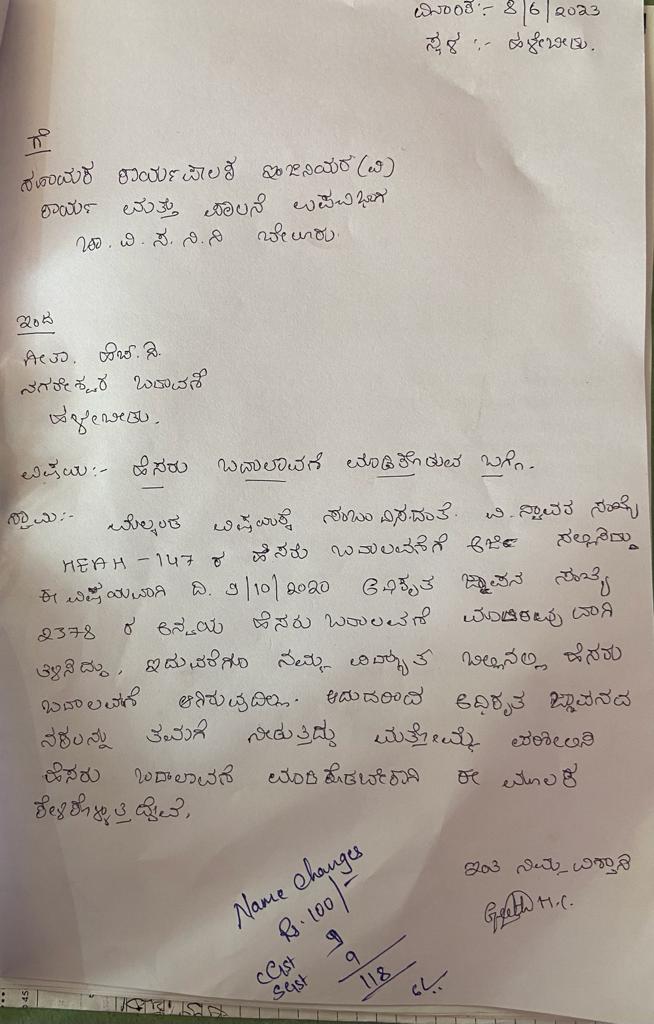 ದಿನಾಂಕ:- 8/6/2023
ಸ್ಥಳ :- ಹಳೇಬೀಡು.
ಗೆ
ಸಹಾಯಕ ಕಾರ್ಯಪಾಲಕ ಇಂಜಿನಿಯರ (ವಿ)
ಕಾರ್ಯ ಮತ್ತು ಪಾಲನೆ ಉಪವಿಭಾಗ
ಚಾ. ವಿ. ಸ. ನಿ. ನಿ ಬೇಲೂರು.
ಇಂದ
ಗೀತಾ. ಹೆಚ್.ಸಿ.
ನಗರೇಶ್ವರ ಬಡಾವಣೆ
ಹಳೇಬೀಡು.
ವಿಷಯ:- ಹೆಸರು ಬದಾಲಾವಣೆ ಮಾಡಿಕೊಡುವ ಬಗ್ಗೆ.
ಸ್ವಾಮಿ:- ಮೇಲ್ಕಂಡ ವಿಷಯಕ್ಕೆ ಸಂಬಂಧಿಸಿದಂತೆ. ವಿ. ಸ್ಥಾವರ ಸಂಖ್ಯೆ
HEAH - 147 ರ ಹೆಸರು ಬದಾಲವಣೆಗೆ ಅರ್ಜಿ ಸಲ್ಲಿಸಿದ್ದು
ಈ ವಿಷಯವಾಗಿ ದಿ. 9/10/2020 ಅಧಿಕೃತ ಜ್ಞಾಪನ ಸಂಖ್ಯೆ
2378 ರ ಅನ್ವಯ ಹೆಸರು ಬದಾಲವಣೆ ಮಾಡಿರುವುದಾಗಿ
ತಿಳಿಸಿದ್ದು, ಇದುವರೆಗೂ ನಮ್ಮ ವಿದ್ಯುತ ಬಿಲ್ಲಿನಲ್ಲಿ ಹೆಸರು
ಬದಾಲವಣೆ ಆಗಿರುವುದಿಲ್ಲ. ಆದುದರಿಂದ ಅಧಿಕೃತ ಜ್ಞಾಪನದ
ನಕಲನ್ನು ತಮಗೆ ನೀಡುತ್ತಿದ್ದು ಮತ್ತೊಮ್ಮೆ ಪರಿಶೀಲಿಸಿ
ಹೆಸರು ಬದಾಲಾವಣೆ ಮಾಡಿಕೊಡಬೇಕಾಗಿ ಈ ಮೂಲಕ
ಕೇಳಿಕೊಳ್ಳುತ್ತಿದ್ದೇವೆ.
ಇಂತಿ ನಿಮ್ಮ ವಿಶ್ವಾಸಿ
Geetha H.C.
Name Changes
Rs. 100/-
CGst 9
SGst 9
118